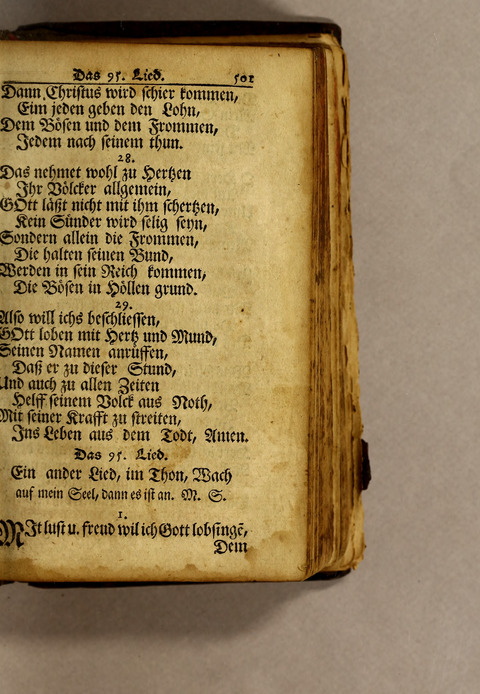 Das 95. Lied. 501
Dann Christus wird schier kommen,
Eim jeden geben den Lohn,
Dem Bösen und dem Frommen,
Jedem nach seinem thun.
28.
Das nehmet wohl zu Hertzen
Ihr Völcker allgemein,
GOtt läßt nicht mit ihm schertzen,
Kein Sünder wird selig seyn,
Sondern allein die Frommen,
Die halten seinen Bund,
Werden in sein Reich kommen,
Die Bösen in Höllen grund.
29.
Also will ichs beschliessen,
GOtt loben mit Hertz und Mund,
Seinen Namen anruffen,
Daß er zu dieser Stund,
Und auch zu allen Zeiten
Helff seinem Volck aus Noth,
Mit seiner Krafft zu streiten,
Ins Leben aus dem Todt, Amen.
Das 95. Lied.
Ein ander Lied, im Thon, Wach
auf mein Seel, dann es ist an. M. S.
1.
MIt lust u. freud wil ich Gott lobsingẽ,
Dem